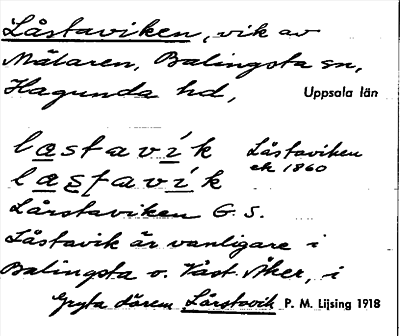 Låstaviken, vik av
Mälaren, Balingsta sn,
Hagunda hd, Uppsala län
lastavik Låstaviken
ek 1860
lastavik
Lårstaviken G. S.
Låstavik är vanligare i
Balingsta o. Väst. Åker, i
Gryta därem. Lårstavik P. M. Lijsing 1918